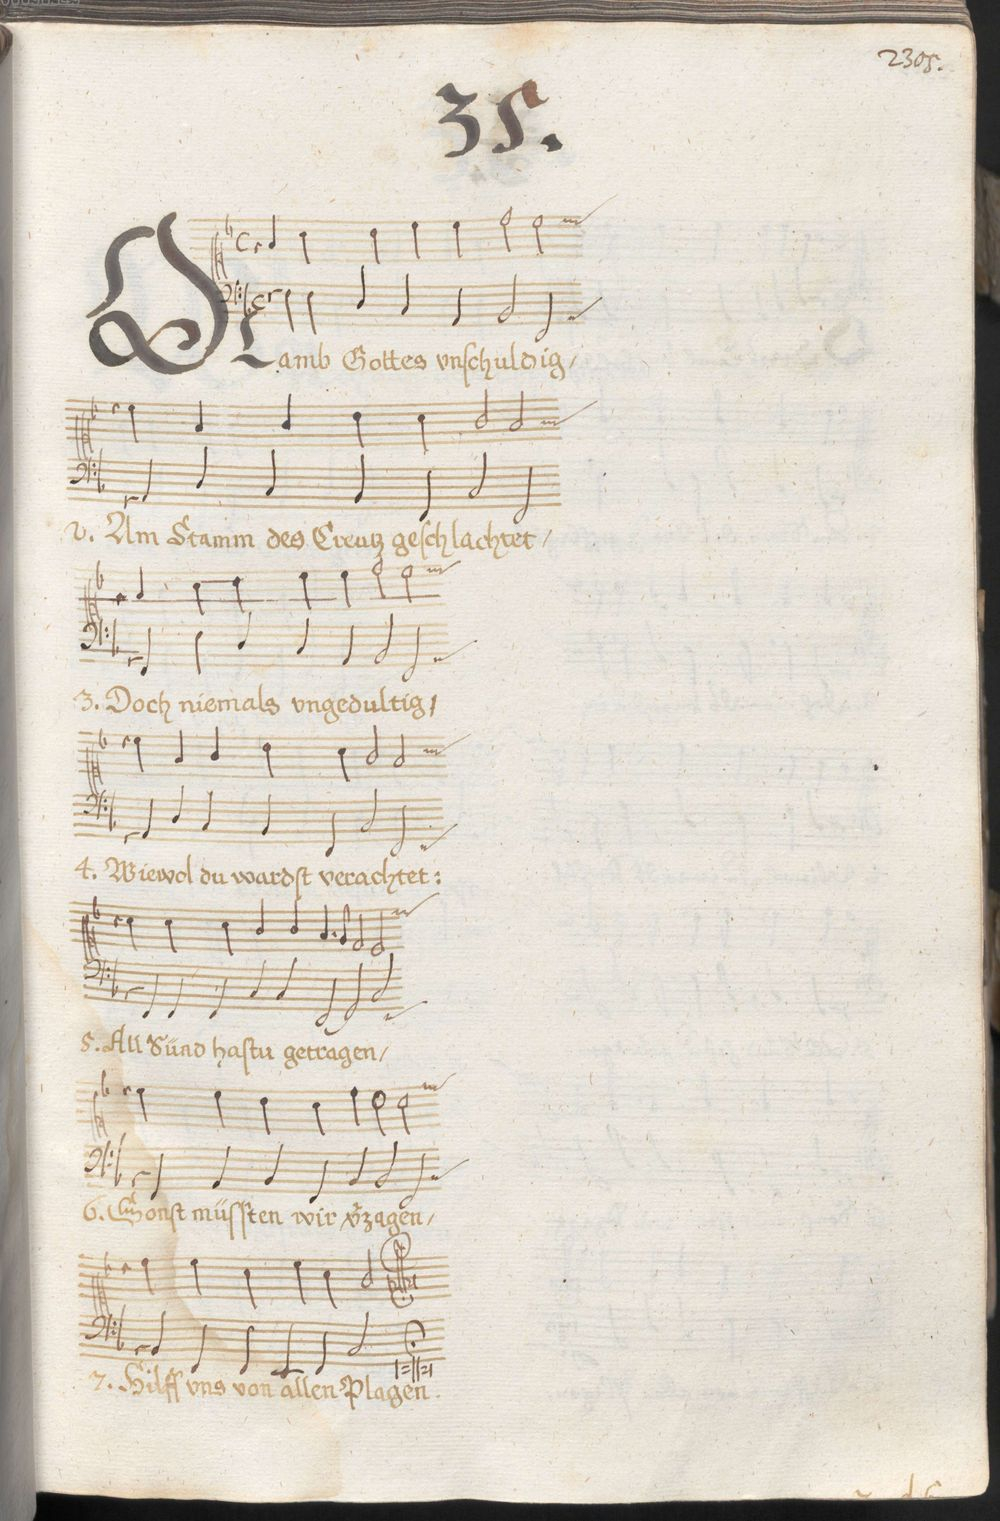 2305.
35.
O
Lamb Gottes vnschuldig/
2. Am Stamm des Creutz geschlachtet/
3. Doch niemals vngedultig/
4. Wiewol du wardst verachtet:
5. All Sünd hastu getragen/
6. Sonst müssten wir v̈zagen/
7. Hilff vns von allen Plagen.